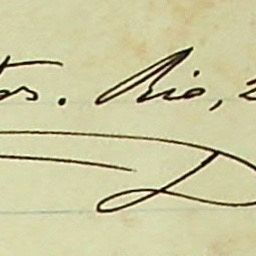 tos. Rio, 2